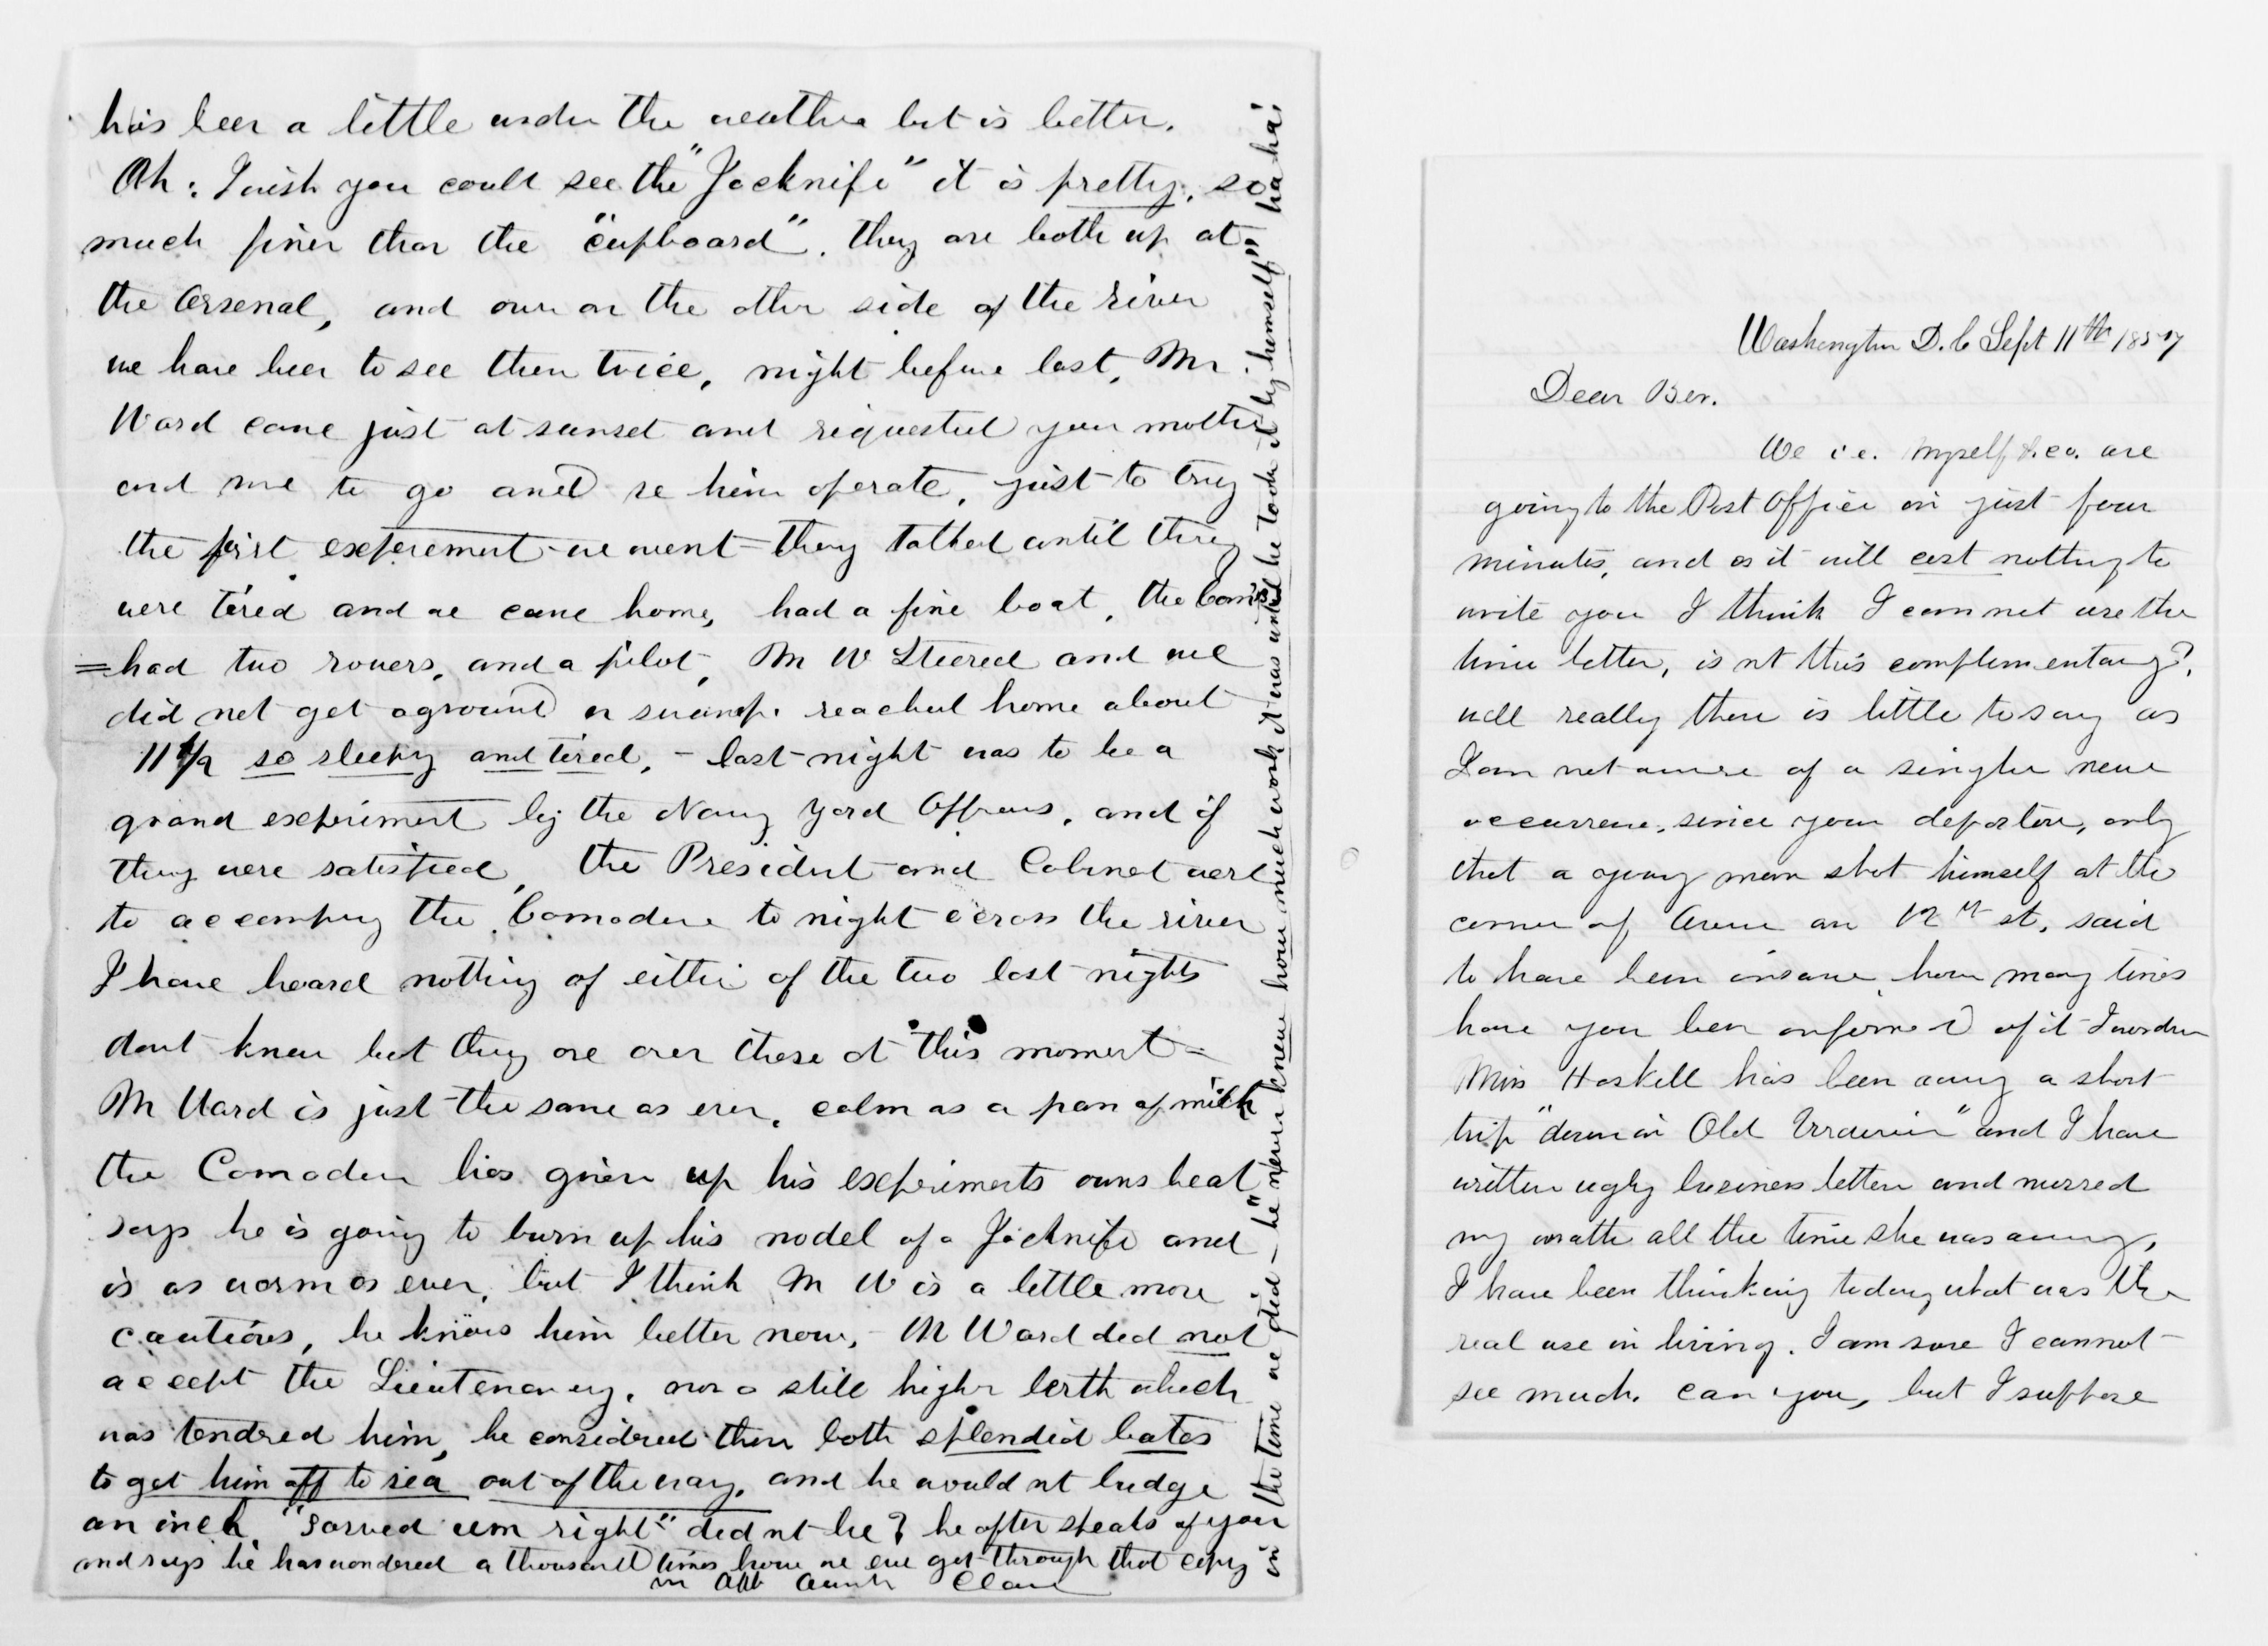 has been a little under the weather but is better.
Oh: I wish you could see the "Jacknife" it is pretty, so
much finer than the "cupboard". they are both up at
the Arsenal, and over on the other side of the river
we have been to see them twice, night before last, Mr
Ward came just at sunset and requested your mother
and me to go and se him operate, just to try
the first experiment - we went - they talked until they
were tired and we came home, had a fine boat, the Com's
= had two rowers, and a pilot, Mr W steered and we
did not get aground or swamp. reached home about
11 1/2 so sleepy and tired, - last night was to be a
grand experiment by the Navy Yard Officers, and if
they were satisfied, the President and Cabinet were
to accompany the Comodore to night across the river
I have heard nothing of either of the two last nights
dont know but they are over there at this moment -
Mr Ward is just the same as ever, calm as a pan of milk
the Comodore has given up his experiments owns beat
says he is going to burn up his model of a Jacknife and
is as warm as ever, but I think Mr W is a little more
cautious, he knows him better now, - Mr Ward did not
accept the Lieutenancy, nor a still higher berth which
was tendred him, he considered them both splendid baits
to get him off to sea out of the way, and he would nt budge
an inch, "sarved um right" did nt he? he often speaks of you
and says he has wondered a thousand times how we ever got through that copy
in the time we did - he "never knew how much work it was until he took it by himself" ha ha!
Aunt Clara
Washington D.C Sept 11th 1857
Dear Ber.
We i.e. myself & co. are
going to the Post Office in just four
minutes, and as it will cost nothing to
write you I think I can not use the
time better, is nt this complimentary?,
well really there is little to say as
I am not aware of a single new
occurrence, since your departure, only
that a young man shot himself at the
corner of Avenue an 12th st, said
to have been insane, how many times
have you been informed of it I wonder
Miss Haskell has been away a short
trip "down in Old Virginia" and I have
written ugly business letters and nursed
my wrath all the time she was away,
I have been thinking today what was the
real use in living. I am sure I cannot
see much. can you, but I suppose